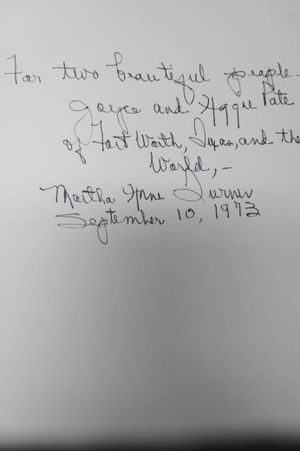 For two beautiful people—
Joyce and Aggie Pate
of Fort Worth, Texas, and the
World,—
Martha Anne Turner
September 10, 1973